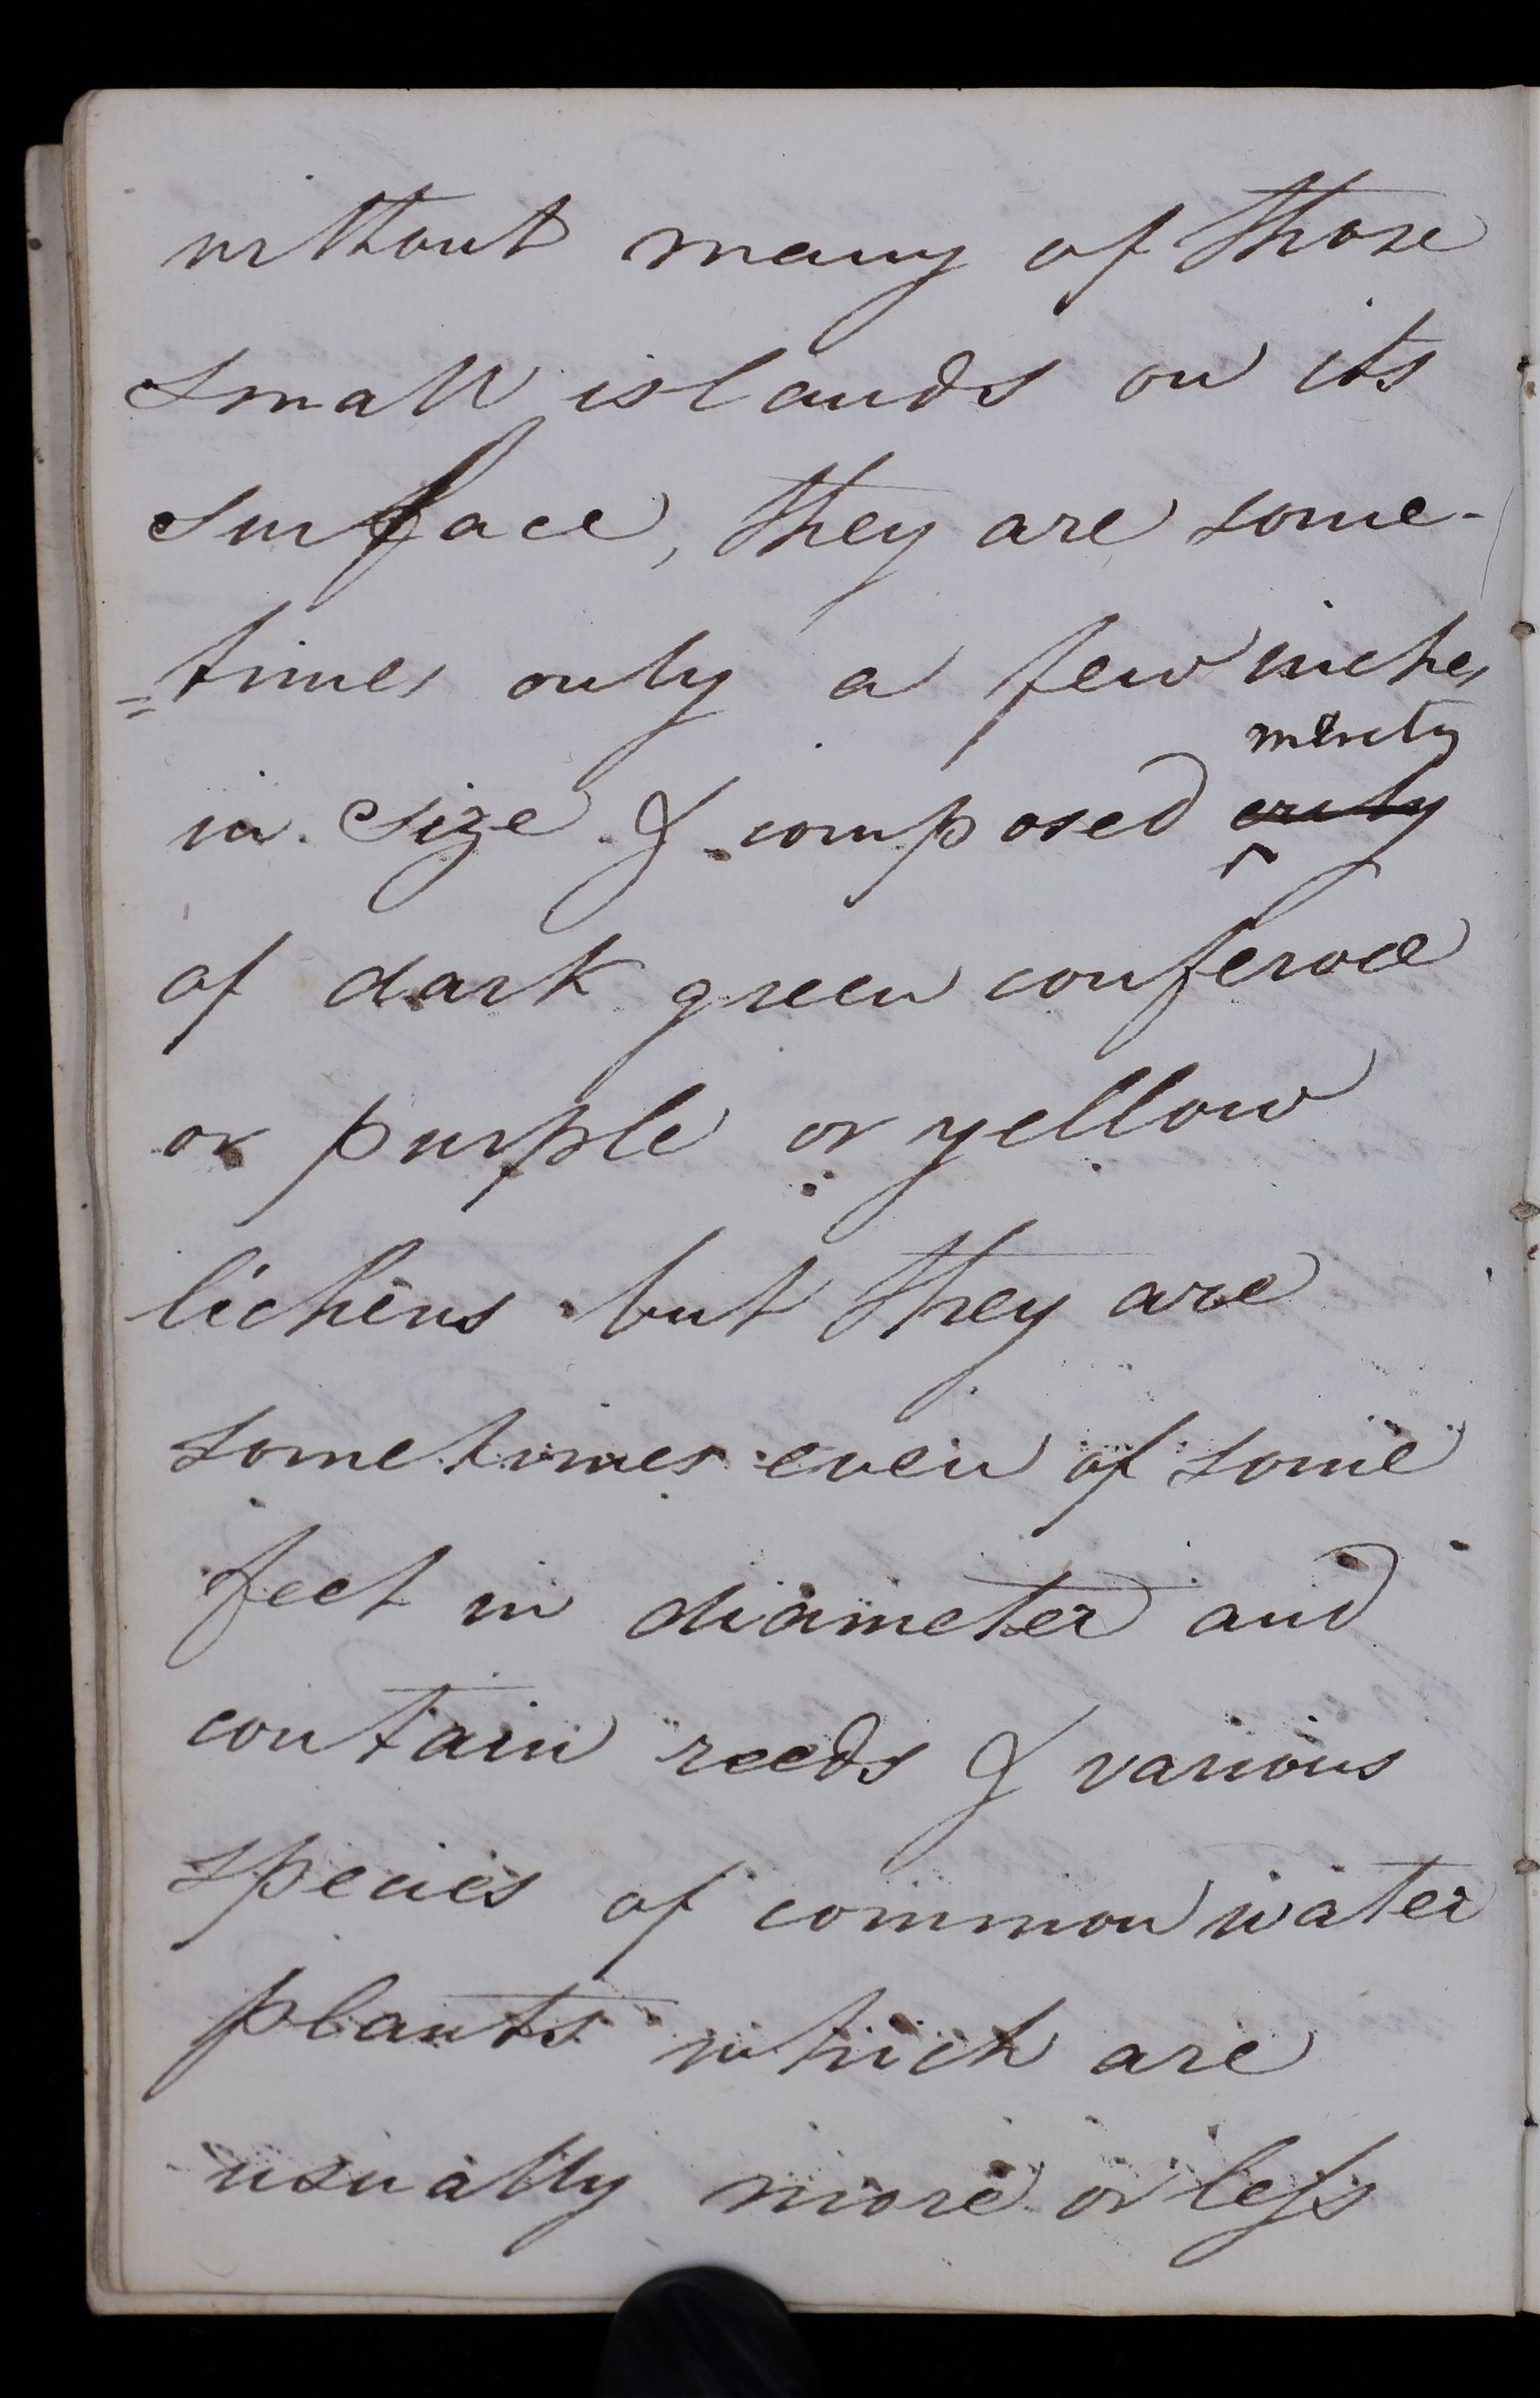 without many of those
small islands on its
surface, they are some-
=times only a few inches
merely
in size & composed only
of dark green confervœ
or purple or yellow
lichens but they are
sometimes even of some
feet in diameter and
contain reeds & various
species of common water
plants which are
usually more or leſs